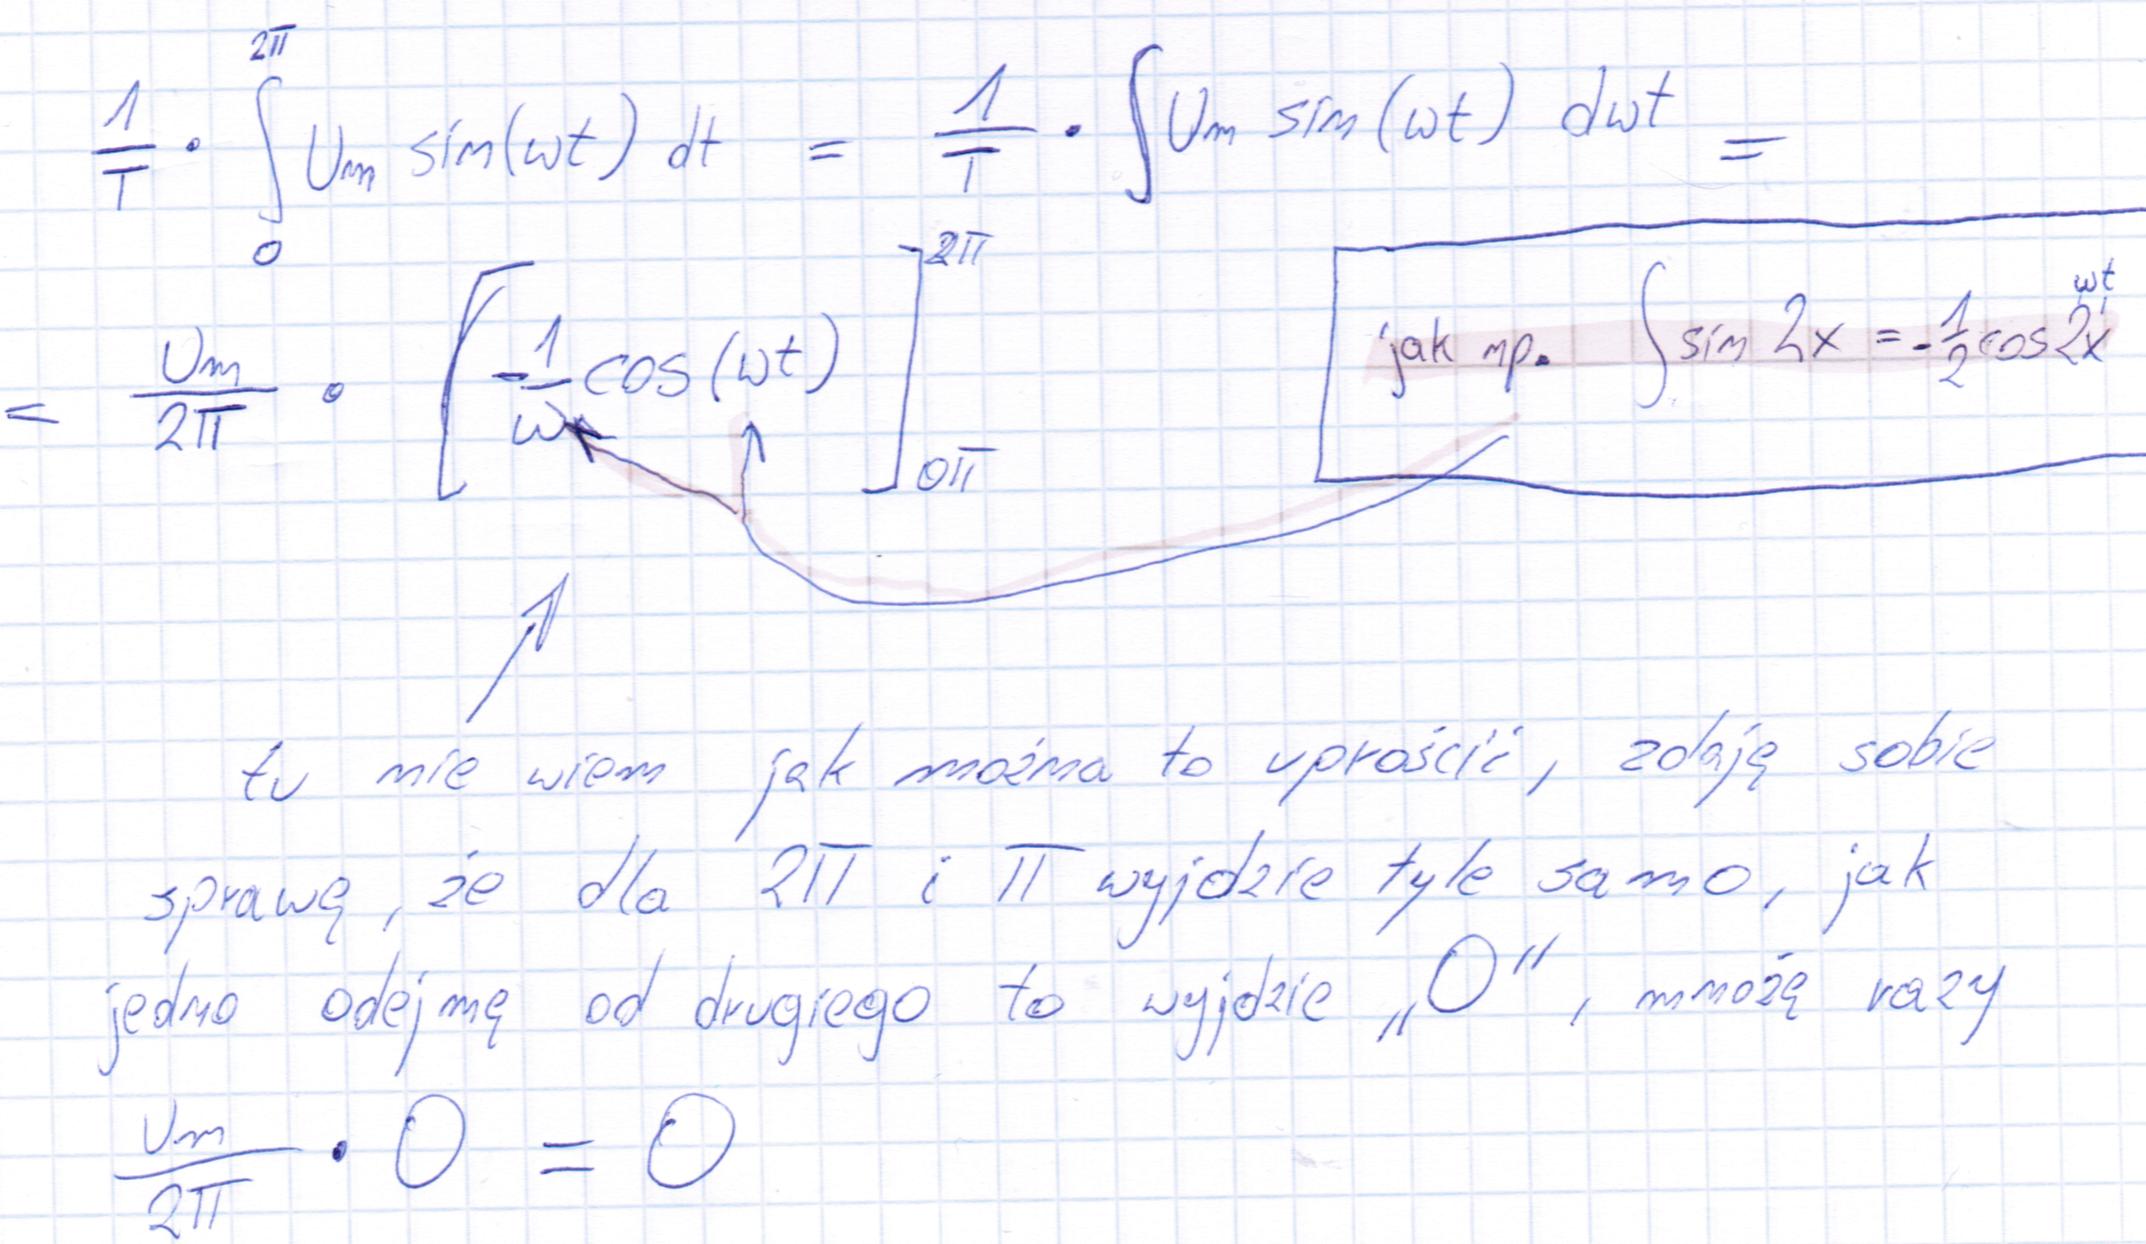 1/T · ∫₀^{2π} Um sin(ωt) dt = 1/T · ∫ Um sin(ωt) dωt =
= Um/2π · [ -1/ω cos(ωt) ]_{0π}^{2π}
jak np. ∫ sin 2x = -1/2 cos 2x
ωt
tu nie wiem jak można to uprościć, zdaję sobie
sprawę, że dla 2π i π wyjdzie tyle samo, jak
jedno odejmę od drugiego to wyjdzie „0”, mnożę razy
Um/2π · 0 = 0